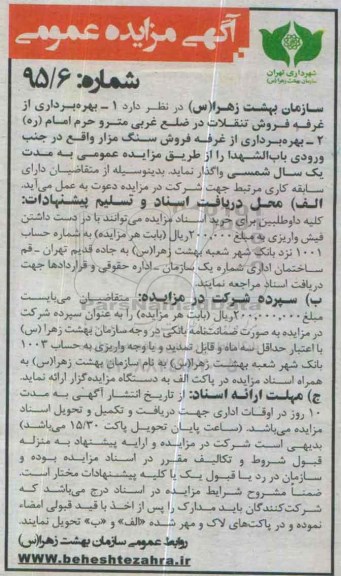 آگهی مزایده عمومی
شهرداری تهران
سازمان بهشت زهرا(س)
شماره: ۹۵/۶
سازمان بهشت زهرا(س) در نظر دارد ۱- بهره‌برداری از
غرفه فروش تنقلات در ضلع غربی مترو حرم امام (ره)
۲- بهره‌برداری از غرفه فروش سنگ مزار واقع در جنب
ورودی باب‌الشهدا را از طریق مزایده عمومی به مدت
یک سال شمسی واگذار نماید. بدینوسیله از متقاضیان دارای
سابقه کاری مرتبط جهت شرکت در مزایده دعوت به عمل می‌آید.
الف) محل دریافت اسناد و تسلیم پیشنهادات:
کلیه داوطلبین برای خرید اسناد مزایده می‌توانند با در دست داشتن
فیش واریزی به مبلغ ۲۰۰,۰۰۰ریال (بابت هر مزایده) به شماره حساب
۱۰۰۱ نزد بانک شهر شعبه بهشت زهرا(س) به جاده قدیم تهران -قم
ساختمان اداری شماره یک سازمان -اداره حقوقی و قراردادها جهت
دریافت اسناد مراجعه نمایند.
ب) سپرده شرکت در مزایده: متقاضیان می‌بایست
مبلغ ۲۰۰,۰۰۰,۰۰۰ریال (بابت هر مزایده) را به عنوان سپرده شرکت
در مزایده به صورت ضمانتنامه بانکی در وجه سازمان بهشت زهرا (س)
با اعتبار حداقل سه ماه و قابل تمدید و یا وجه واریزی به حساب ۱۰۰۳
بانک شهر شعبه بهشت زهرا(س) به نام سازمان بهشت زهرا(س) به
همراه اسناد مزایده در پاکت الف به دستگاه مزایده‌گزار ارائه نماید.
ج) مهلت ارائه اسناد: از تاریخ انتشار آگهی به مدت
۱۰ روز در اوقات اداری جهت دریافت و تکمیل و تحویل اسناد
مزایده می‌باشد. (ساعت پایان تحویل پاکت ۱۵/۳۰ می‌باشد)
بدیهی است شرکت در مزایده و ارایه پیشنهاد به منزله
قبول شروط و تکالیف مقرر در اسناد مزایده بوده و
سازمان در رد یا قبول یک یا کلیه پیشنهادات مختار است.
ضمناً مشروح شرایط مزایده در اسناد درج می‌باشد که
شرکت‌کنندگان باید مدارک را پس از اخذ با قید قبولی امضاء
نموده و در پاکت‌های لاک و مهر شده «الف» و «ب» تحویل نمایند.
روابط عمومی سازمان بهشت زهرا(س)
www.beheshtezahra.ir